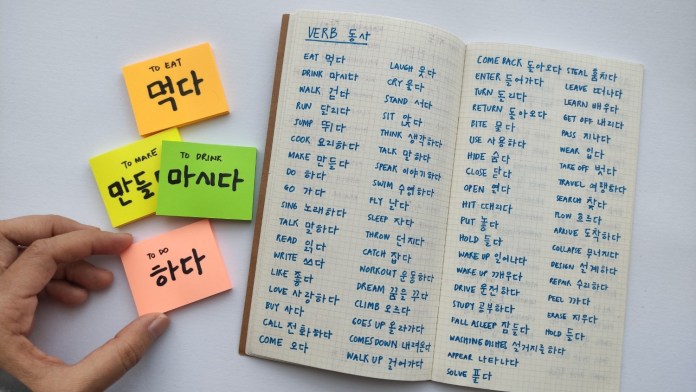 TO EAT
먹다
TO MAKE
만들
TO DRINK
마시다
TO DO
하다
VERB 동사
EAT 먹다
DRINK 마시다
WALK 걷다
RUN 달리다
JUMP 뛰다
COOK 요리하다
MAKE 만들다
DO 하다
GO 가다
SING 노래하다
TALK 말하다
READ 읽다
WRITE 쓰다
LIKE 좋다
LOVE 사랑하다
BUY 사다
CALL 전화하다
COME 오다
LAUGH 웃다
CRY 울다
STAND 서다
SIT 앉다
THINK 생각하다
TALK 말하다
SPEAK 이야기하다
SWIM 수영하다
FLY 날다
SLEEP 자다
THROW 던지다
CATCH 잡다
WORKOUT 운동하다
DREAM 꿈을 꾸다
CLIMB 오르다
GOES UP 올라가다
COMES DOWN 내려오다
WALK UP 걸어가다
COME BACK 돌아오다
ENTER 들어가다
TURN 돌리다
RETURN 돌아오다
BITE 물다
USE 사용하다
HIDE 숨다
CLOSE 닫다
OPEN 열다
HIT 때리다
PUT 놓다
HOLD 들다
WAKE UP 일어나다
WAKE UP 깨우다
DRIVE 운전하다
STUDY 공부하다
FALL ASLEEP 잠들다
WASHING DISHES 설거지를 하다
APPEAR 나타나다
SOLVE 풀다
STEAL 훔치다
LEAVE 떠나다
LEARN 배우다
GET OFF 내리다
PASS 지나다
WEAR 입다
TAKE OFF 벗다
TRAVEL 여행하다
SEARCH 찾다
FLOW 흐르다
ARRIVE 도착하다
COLLAPSE 무너지다
DESIGN 설계하다
REPAIR 수리하다
PEEL 까다
ERASE 지우다
HOLD 들다